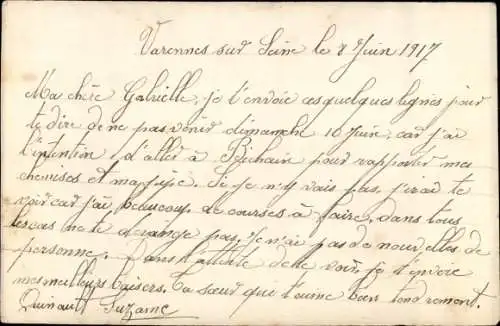 Varennes sur Seine le 8 Juin 1917
Ma chère Gabrielle, je t'envoie ces quelques lignes pour
te dire de ne pas venir dimanche 10 Juin, car j'ai
l'intention d'aller à pour rapporter mes
chemises et ma jupe. Si je n'y vais pas, j'irai te
voir car j'ai beaucoup de courses à faire, dans tous
les cas ne te dérange pas, Je n'ai pas de nouvelles de
personne. Dans l'attente de te voir, je t'envoie
mes meilleurs baisers. Ta sœur qui t'aime bien tendrement.
Quinault Suzanne